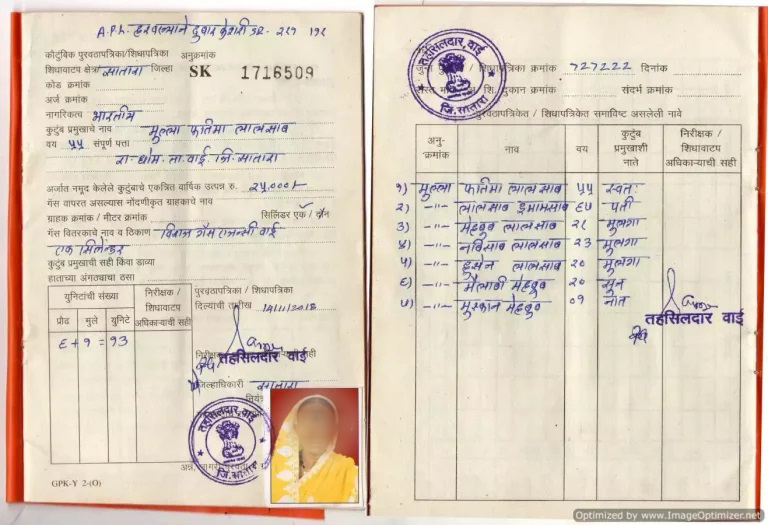 A.P.L.
कौटुंबिक पुरवठापत्रिका/शिधापत्रिका अनुक्रमांक
शिधावाटप क्षेत्र सातारा जिल्हा SK 1716509
कोड क्रमांक
अर्ज क्रमांक
नागरिकत्व भारतीय
कुटुंब प्रमुखाचे नाव मुल्ला फातिमा लालसाब
वय ५५ संपूर्ण पत्ता
रा. धोम. ता. वाई. जि. सातारा
अर्जात नमूद केलेले कुटुंबाचे एकत्रित वार्षिक उत्पन्न रु. २५,०००/-
गॅस वापरत असल्यास नोंदणीकृत ग्राहकाचे नाव
ग्राहक क्रमांक / मीटर क्रमांक सिलिंडर एक / दोन
गॅस वितरकाचे नाव व ठिकाण विराज गॅस एजन्सी वाई
एक सिलेंडर
कुटुंब प्रमुखाची सही किंवा डाव्या
हाताच्या अंगठ्याचा ठसा
युनिटांची संख्या
निरीक्षक / शिधावाटप अधिकाऱ्याची सही
प्रौढ मुले युनिटे
६ + १ = १३
पुरवठापत्रिका / शिधापत्रिका
दिल्याची तारीख
तहसिलदार वाई
जिल्हाधिकारी सातारा
तहसिलदार, वाई
जि. सातारा
GPK-Y 2-(O)
तहसिलदार, वाई
जि. सातारा
शिधापत्रिका क्रमांक ७२७२२२ दिनांक
दुकान क्रमांक संदर्भ क्रमांक
पुरवठापत्रिकेत / शिधापत्रिकेत समाविष्ट असलेली नावे
अनु-क्रमांक नाव वय कुटुंब प्रमुखाशी नाते निरीक्षक / शिधावाटप अधिकाऱ्याची सही
१) मुल्ला फातिमा लालसाब ५५ स्वतः
२) -॥- लालसाब इमामसाब ६५ पती
३) -॥- मेहबुब लालसाब २८ मुलगा
४) -॥- नबिसाब लालसाब २३ मुलगा
५) -॥- हुसेन लालसाब २० मुलगा
६) -॥- मेहबुब २० सुन
७) -॥- मुस्कान मेहबुब ०१ नात
तहसिलदार वाई
Optimized by www.ImageOptimizer.net